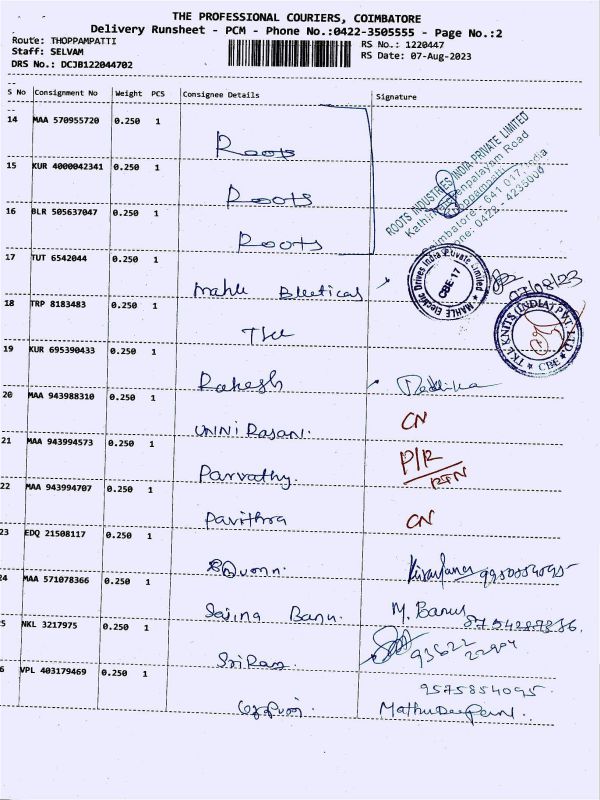 THE PROFESSIONAL COURIERS, COIMBATORE
Delivery Runsheet - PCM - Phone No.:0422-3505555 - Page No.:2
Route: THOPPAMPATTI
Staff: SELVAM
DRS No.: DCJB122044702
RS No.: 1220447
RS Date: 07-Aug-2023
S No Consignment No Weight PCS Consignee Details Signature
14 MAA 570955720 0.250 1 Roots
ROOTS INDUSTRIES INDIA PRIVATE LIMITED
15 KUR 4000042341 0.250 1 Roots
16 BLR 505637047 0.250 1 Roots
17 TUT 6542044 0.250 1 Mahle Electical
MAHLE Electric Drives India Private Limited
CBE-17
07/08/23
18 TRP 8183483 0.250 1 TKL
TKL KNITS (INDIA) PVT. LTD.
CBE
19 KUR 695390433 0.250 1 Rakesh
20 MAA 943988310 0.250 1 UNNi Rasani. CN
21 MAA 943994573 0.250 1 Parvathy. P/R
RTN
22 MAA 943994707 0.250 1 Pavithra CN
23 EDQ 21508117 0.250 1
24 MAA 571078366 0.250 1 Sajina Banu M. Banu
25 NKL 3217975 0.250 1 Sri Ram
26 VPL 403179469 0.250 1
9575854095